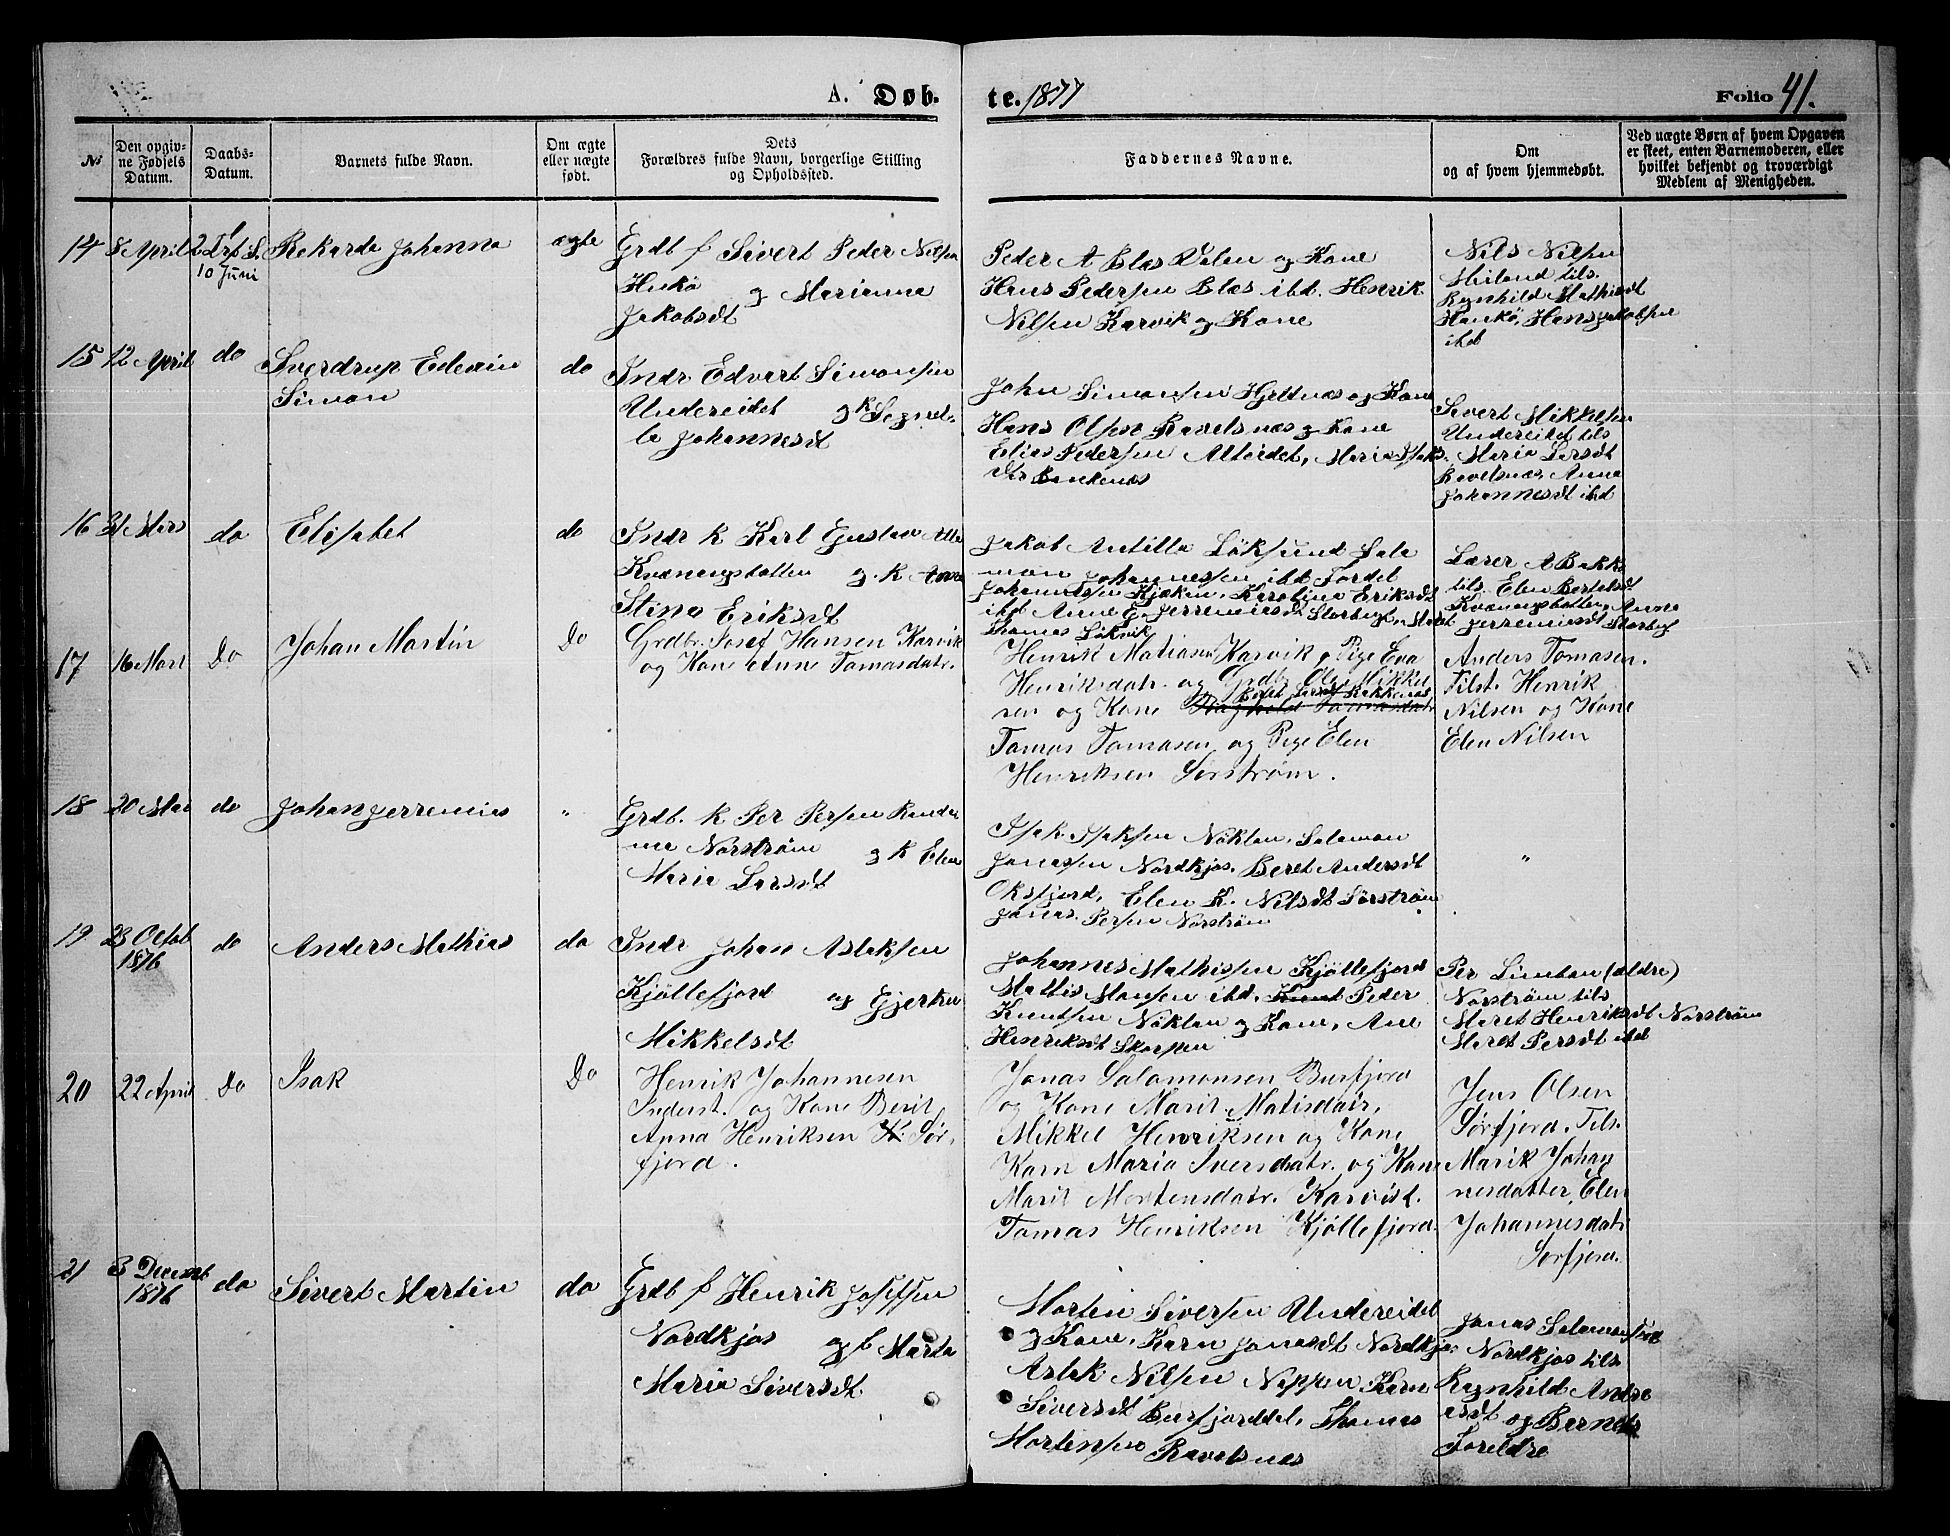 A. Døb-
te. 1877
Folio 41.
№
Den opgiv-
ne Fødsels
Datum.
Daabs-
Datum.
Barnets fulde Navn.
Om ægte
eller uægte
født.
Dets
Forældres fulde Navn, borgerlige Stilling
og Opholdssted.
Faddernes Navne.
Om
og af hvem hjemmedøbt.
Ved uægte Børn af hvem Opgaven
er skeet, enten Barnemoderen, eller
hvilket bekjendt og troværdigt
Medlem af Menigheden.
14
8 April
10 Juni
Rekarda Johanna
ægte
Grdb f Sivert Peder Nilsen
Hukø og Marianna
Jakobsdt
Peder A Blæs Valen og Kone
Hans Pedersen Blæs ibd. Henrik
Nilsen Karvik og Kone
Nils Nilsen
Meiland tils.
Rognhild Mathisdt
Haukø, Hans Jakobsen
ibd
15
12 April
do
Sverdrup Edevin
Simon
do
Indr Edvart Simonsen
Undereidet og k Segnel-
le Johannesdt
John Simonsen Hjeltnæs og Kone
Hans Olsen Ravelsnæs og Kone
Elias Pedersen Alteidet, Maria Isaks-
dtr
Sivert Mikkelsen
Undereidet tils
Maria Larsdt
Ravelsnæs Anna
Johannesdt ibd
16
31 Mars
do
Elisabet
do
Indr k Karl Gustav
Kvænangsbotten og k Anna
Stina Eriksdt
Jakob Antilla Løksund Sala
mon Johannessen ibd Fordel
Johannessen Kjækan, Karolina Eriksdt
ibd Anne G. Jerremiasdt Storbugt
Thomas Løkvik
Lærer A Bakke
tils. Elen Bertelsdt
Kvænangsbotten, Anna
Jerremiasdt Storbugt
17
16 Mart
Do
Johan Martin
Do
Grdbr. Josef Hansen Karvik
og Kone Ane Tomasdatr.
Henrik Matiasen Karvik, Pige Eva
Henriksdatr. og Grdb. Ole Mikkel
sen og Kone
Tomas Tomasen og Pige Elen
Henriksen Sørstrøm.
Anders Tomasen.
Tilst. Henrik
Nilsen og Kone
Elen Nilsen
18
20 Mai
do
Johan Jerremias
"
Grdb. k Per Persen
Norstrøm og k Elen
Maria Larsdt
Isak Isaksen Nøklan, Salamon
Jonassen Nordkjos, Beret Andersdt
Oksfjord, Elen K. Nilsdt Sørstrøm
Jonas Persen Norstrøm
"
19.
23 Octob
1876
do
Anders Mathias
do
Indr Johan Aslaksen
Kjøllefjord og Gjerker
Mikkelsdt
Johannes Mathissen Kjøllefjord
Mathis Hansen ibd. Knut Peder
Knutsen Nøklan og Kone, Ane
Henriksdt Skorpen
Per Simtan (ældre)
Norstrøm tils
Maret Henriksdt Norstrøm
Maret Persdt ibd
20
22 April
Do
Isak
Do
Henrik Johannesen
Inderst. og Kone Berit
Anna Henriksen K. Sør-
fjord.
Jonas Salamonsen Burfjord
og Kone Marit Matisdatr,
Mikkel Henriksen og Kone
Karn Maria Iversdatr. og Kone
Marit Mortensdatr. Karvik.
Tomas Henriksen Kjøllefjord.
Jens Olsen
Sørfjord. Tils.
Marik Johan
nesdatter, Elen
Johannesdatr
Sørfjord.
21
3 Decembr
1876
do
Sivert Martin
do
Grdb f Henrik Josefsen
Nordkjos og f Marta
Maria Siversdt
Morten Siversen Undereidet
og Kone, Karn Jonasdt Nordkjos
Aslak Nilsen Nøssen Karn
Siversdt Burfjorddal, Thomas
Mortensen Ravelsnæs
Jonas Salamonsen
Nordkjos tils
Ragnhild Andre
asdt og Barnets
Foreldre